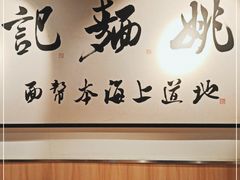 姚麵記
地道上海本幫面